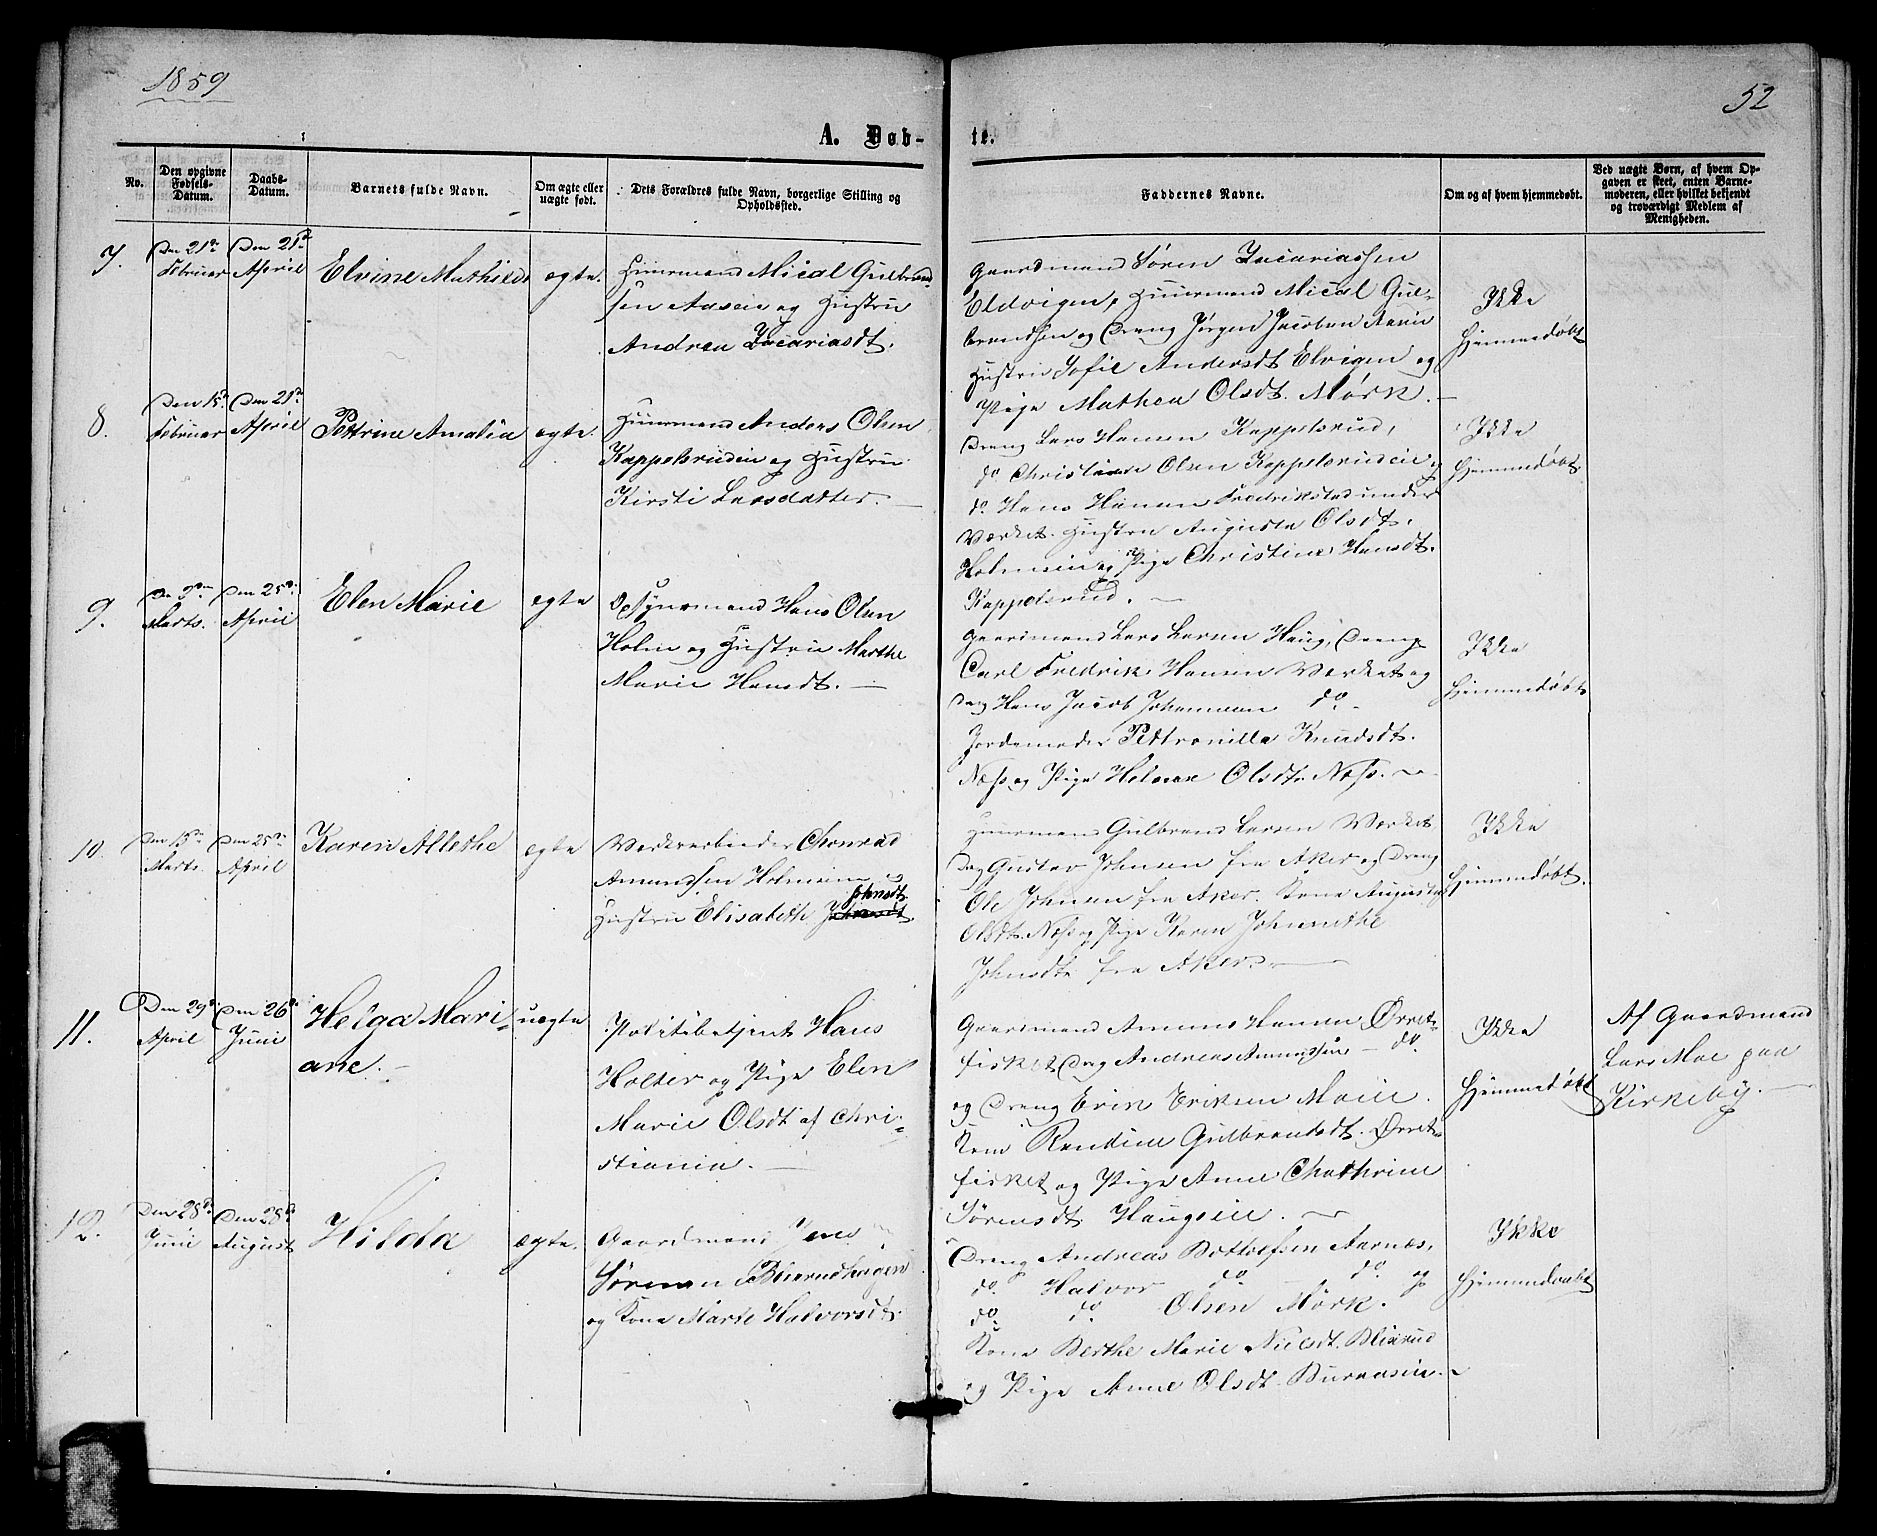 1859
52
A. Døb-
te.
No.
Den opgivne Fødsels-Datum.
Daabs-Datum.
Barnets fulde Navn.
Om ægte eller uægte født.
Dets Forældres fulde Navn, borgerlige Stilling og Opholdssted.
Faddernes Navne.
Om og af hvem hjemmedøbt.
Ved uægte Børn, af hvem Opgaven er skeet, enten Barnemoderen, eller hvilket bekjendt og troværdigt Medlem af Menigheden.
7.
Den 21de
Februar
Den 21de
April
Elvine Mathilde
egte.
Huusmand Mical Gulbrand
sen Aaseie og Hustru
Andrea Zacariasdt.
Gaardmand Søren Zacariassen
Eldvigen, Huusmand Mical Gul-
brandsen og Dreng Jørgen Jacobsen
Hustru Sofie Andersdt Elvigen og
Pige Mathea Olsdt. Mørk.
Ikke
Hjemmedøbt
8.
Den 15de
Februar
Den 21de
April
Pettrine Amalia
egte.
Huusmand Anders Olsen
Kappelsrudeie og Hustru
Kirsti Larsdatter.
Dreng Lars Hansen Kappelsrud,
do Christian Olsen Kappelsrudeie
do. Hans Hansen Fredrikstad under
Værket. Hustru Augusta Olsdt.
Holmein og Pige Christine Hansdt.
Kappelsrud.
Ikke
Hjemmedøbt
9.
Marts.
Den 25de
April
Elen Marie
egte
Opsynsmand Hans Olsen
Holm og Hustru Marthe
Marie Hansdt.
Gaardmand Lars Larsen Haug, Dreng
Carl Fredrik Hansen Værket og
Drg Hans Jacob Johannesen do
Jordemoder Pettronille Knudsdt.
Næs og Pige Helene Olsdt. Næs.
Ikke
Hjemmedøbt
10.
Den 15de
Marts.
Den 25de
April
Karen Allethe
egte
Værksarbeider Chonrad
Amundsen Holmeie og
Hustru Elisabeth Johnsdt.
Huusmand Gulbrand Larsen Værket,
Drg Gustav Johnsen fra Aker og Dreng
Ole Johnsen fra Aker. Kone Augusta
Olsdt. Næs og Pige Karen Johannethe
Johnsdt. fra Aker.
Ikke
Hjemmedøbt.
11.
Den 29de
April
Den 26de
Juni
Helga Mari-
ane.
uægte
Politibetjent Hans
Holter og Pige Elen
Marie Olsdt af Chri-
stiania.
Gaardmand Amund Hansen Ørret-
fisket, Drg Andreas Amundsen — do
og Dreng Erik Eriksen Moeie.
Kone Randine Gulbrandsdt. Ørret-
fisket og Pige Anne Chathrine
Sørensdt Haugseie.
Ikke
Hjemmedøbt
Af Gaardmand
Lars Moe paa
Kirkeby.
12.
Den 28de
Juni
Den 28de
August
Hilda
ægte.
Gaardmand Jens
Sørensen
og Kone Marte Halvorsdt.
Dreng Andreas Aarnæs,
do. Halvor do. do. og
do. do. Olsen Mørk.
Kone Berthe Marie Nielsdt. Blixrud
og Pige Anne Olsdt.
Ikke
Hjemmedøbt